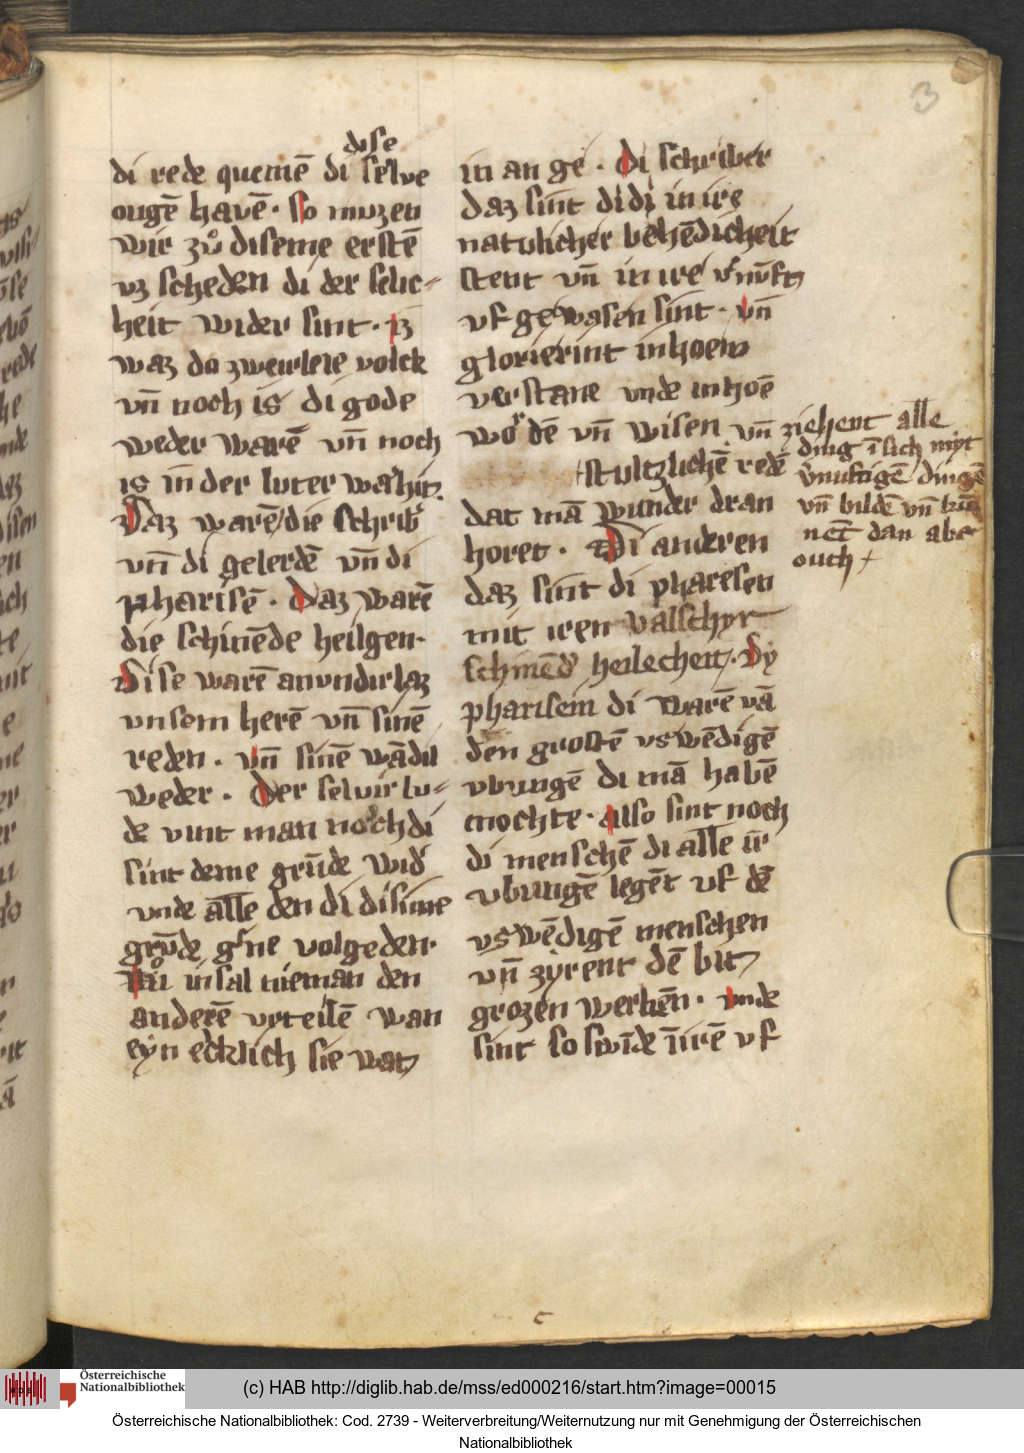 3
dise
di rede quemē di selve
ougē havē · so muzen
wir zů diseme erstē
vz scheden di der selic-
heit wider sint · Iz
waz do zweirleie volck
vn̄ noch is di gode
weder warē vn̄ noch
is in der luter warhit.
Daz warē die schrib
vn̄ di gelerdē vn̄ di
pharisē · Daz warē
die schinēde heilgen·
Dise warē an vndirlaz
vnsem herē vn̄ sinē
reden · vn̄ sinē wādil
weder · Der selvir lu-
de vint man noch di
sint deme grūde wid
vnde alle den di disime
grūde gerne volgeden·
Nů in sal nieman den
anderē vrteilē wan
eyn ecklich sie wat
in an ge · Di schriber
daz sint di di in ire
naturlicher behēdicheit
stent vn̄ in ire vernūft
vf gewasen sint · vn̄
glorierint in hoem
verstane vnde in hoē
wordē vn̄ wisen vn̄ ziehent alle
ding ī sich myt
vnuftigē dingē
vn̄ bildē vn̄
nēt dan abe
ouch +
+ stultzlichē redē
dat mā wunder dran
horet · Di anderen
daz sint di pharesen
mit iren valschyr
schinēd heilecheit · Dy
pharisein di warē vā
den grostē vswēdigē
vbungē di mā habē
mochte · also sint noch
di menschē di alle ir
vbungē legēt vf dē
vswēdigē menschen
vn̄ zyrent dē bit
grozen werkēn · vnde
sint so swīde ī irē vf
c
Österreichische
Nationalbibliothek
(c) HAB http://diglib.hab.de/mss/ed000216/start.htm?image=00015
Österreichische Nationalbibliothek: Cod. 2739 - Weiterverbreitung/Weiternutzung nur mit Genehmigung der Österreichischen
Nationalbibliothek